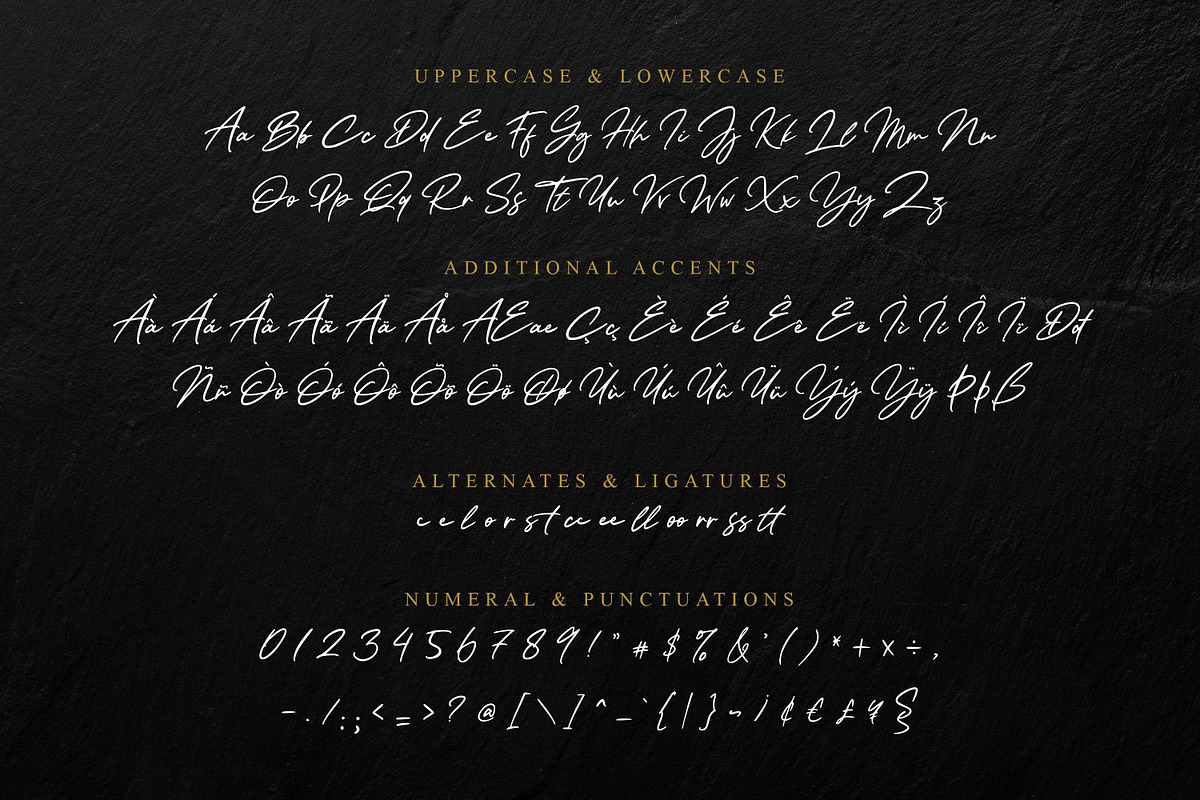 UPPERCASE & LOWERCASE
Aa Bb Cc Dd Ee Ff Gg Hh Ii Jj Kk Ll Mm Nn
Oo Pp Qq Rr Ss Tt Uu Vv Ww Xx Yy Zz
ADDITIONAL ACCENTS
Àà Áá Ââ Ãã Ää Åå AEae Çç Èè Éé Êê Ëë Ìì Íí Îî Ïï Đđ
Ññ Òò Óó Ôô Õõ Öö Øø Ùù Úú Ûû Üü Ýý Ÿÿ Þþß
ALTERNATES & LIGATURES
c e l o r s t cc ee ll oo rr ss tt
NUMERAL & PUNCTUATIONS
0 1 2 3 4 5 6 7 8 9 ! " # $ % & ' ( ) * + x ÷ ,
- . / : ; < = > ? @ [ \ ] ^ _ ` { | } ~ ¡ ¢ € £ ¥ §